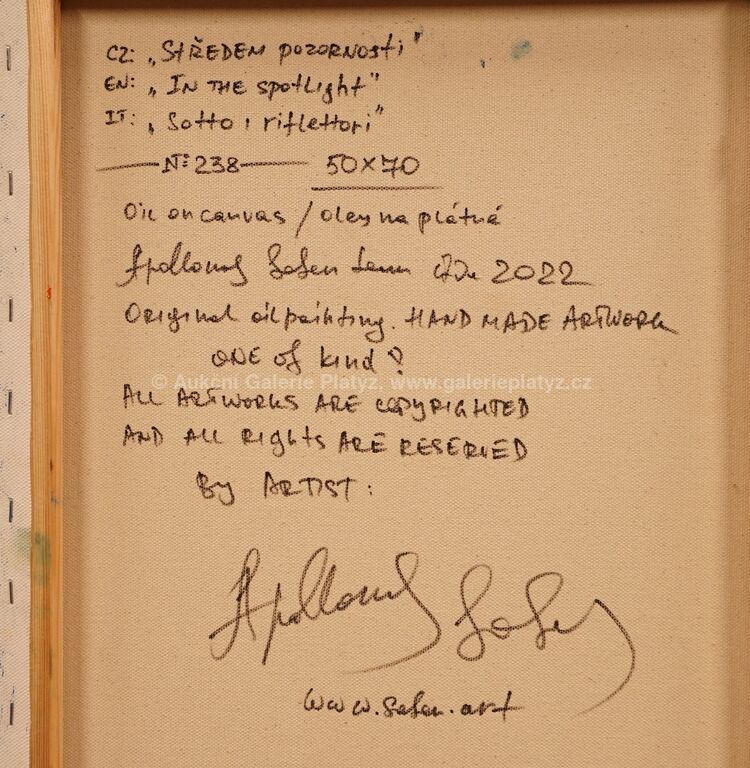 CZ: „STŘEDEM POZORNOSTI"
EN: „IN THE spotlight"
IT: „Sotto i riflettori"
N: 238 50x70
Oil on canvas / olej na plátně
Apollonas 2022
Original oil painting. HAND MADE ARTWORK
ONE of kind
© Aukční Galerie Platýz, www.galerieplatyz.cz
ALL ARTWORKS ARE COPYRIGHTED
AND ALL RIGHTS ARE RESERVED
By ARTIST: